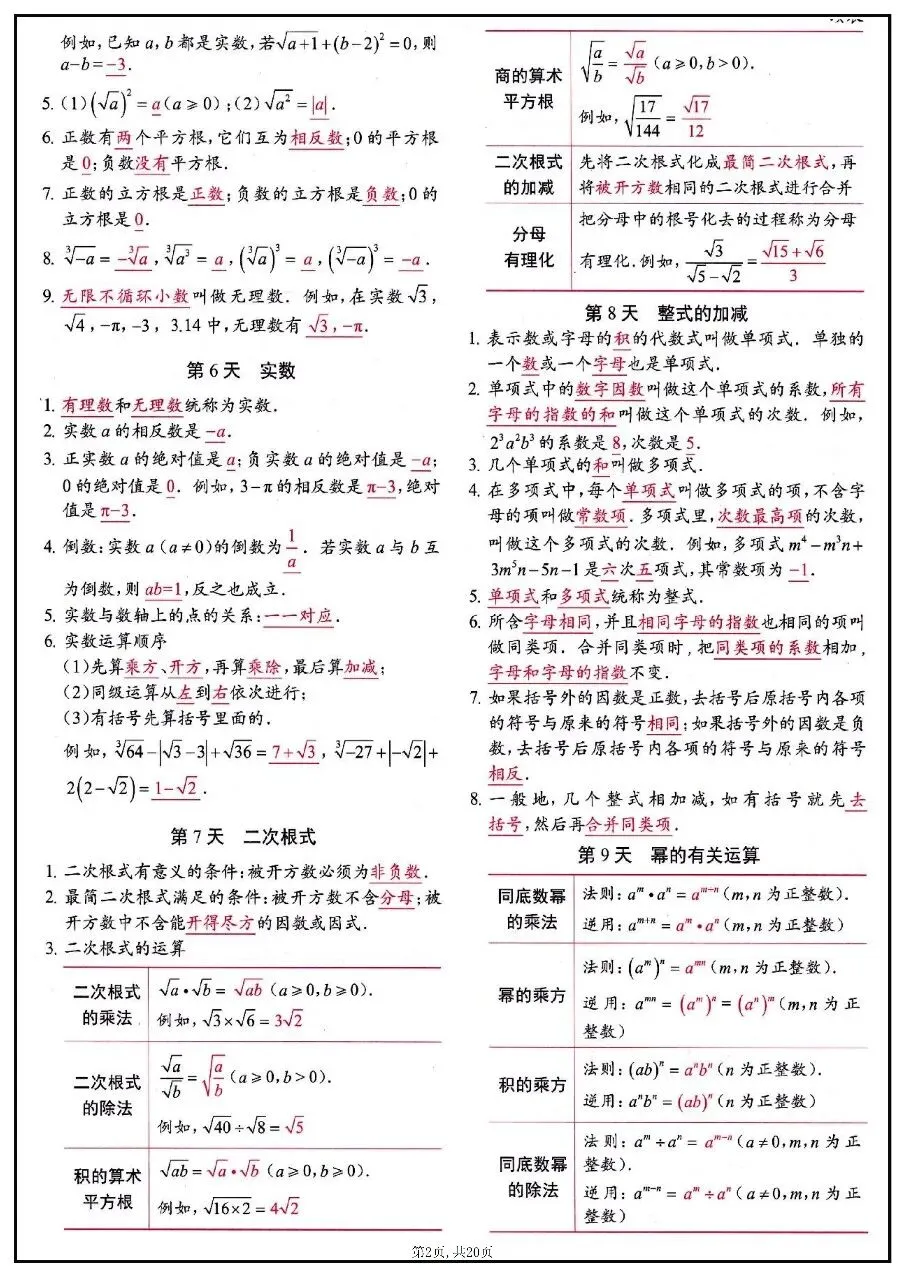 例如,已知a,b都是实数,若√(a+1)+(b-2)²=0,则
a-b=-3.
5. (1)(√a)²=a(a≥0);(2)√(a²)=|a|.
6. 正数有两个平方根,它们互为相反数;0的平方根
是0;负数没有平方根.
7. 正数的立方根是正数;负数的立方根是负数;0的
立方根是0.
8. ∛(-a)=-∛a,∛(a³)=a,(∛a)³=a,(∛(-a))³=-a.
9. 无限不循环小数叫做无理数. 例如,在实数√3,
√4,-π,-3, 3.14中,无理数有√3,-π.
第6天 实数
1. 有理数和无理数统称为实数.
2. 实数a的相反数是-a.
3. 正实数a的绝对值是a;负实数a的绝对值是-a;
0的绝对值是0. 例如,3-π的相反数是π-3,绝对
值是π-3.
4. 倒数:实数a(a≠0)的倒数为1/a. 若实数a与b互
为倒数,则ab=1,反之也成立.
5. 实数与数轴上的点的关系:一一对应.
6. 实数运算顺序
(1)先算乘方、开方,再算乘除,最后算加减;
(2)同级运算从左到右依次进行;
(3)有括号先算括号里面的.
例如,∛64-|√3-3|+√36=7+√3,∛(-27)+|-√2|+
2(2-√2)=1-√2.
第7天 二次根式
1. 二次根式有意义的条件:被开方数必须为非负数.
2. 最简二次根式满足的条件:被开方数不含分母;被
开方数中不含能开得尽方的因数或因式.
3. 二次根式的运算
二次根式
的乘法
√a•√b=√(ab) (a≥0,b≥0).
例如,√3×√6=3√2
二次根式
的除法
√a/√b=√(a/b)(a≥0,b>0).
例如,√40÷√8=√5
积的算术
平方根
√(ab)=√a•√b (a≥0,b≥0).
例如,√(16×2)=4√2
商的算术
平方根
√(a/b)=√a/√b(a≥0,b>0).
例如,√(17/144)=√17/12
二次根式
的加减
先将二次根式化成最简二次根式,再
将被开方数相同的二次根式进行合并
分母
有理化
把分母中的根号化去的过程称为分母
有理化.例如,√3/(√5-√2)=(√15+√6)/3
第8天 整式的加减
1. 表示数或字母的积的代数式叫做单项式. 单独的
一个数或一个字母也是单项式.
2. 单项式中的数字因数叫做这个单项式的系数,所有
字母的指数的和叫做这个单项式的次数. 例如,
2³a²b³的系数是8,次数是5.
3. 几个单项式的和叫做多项式.
4. 在多项式中,每个单项式叫做多项式的项,不含字
母的项叫做常数项.多项式里,次数最高项的次数,
叫做这个多项式的次数. 例如,多项式m⁴-m³n+
3m⁵n-5n-1是六次五项式,其常数项为-1.
5. 单项式和多项式统称为整式.
6. 所含字母相同,并且相同字母的指数也相同的项叫
做同类项. 合并同类项时,把同类项的系数相加,
字母和字母的指数不变.
7. 如果括号外的因数是正数,去括号后原括号内各项
的符号与原来的符号相同;如果括号外的因数是负
数,去括号后原括号内各项的符号与原来的符号
相反.
8. 一般地,几个整式相加减,如有括号就先去
括号,然后再合并同类项.
第9天 幂的有关运算
同底数幂
的乘法
法则:aᵐ•aⁿ=aᵐ⁺ⁿ(m,n为正整数).
逆用:aᵐ⁺ⁿ=aᵐ•aⁿ(m,n为正整数)
幂的乘方
法则:(aᵐ)ⁿ=aᵐⁿ(m,n为正整数).
逆用:aᵐⁿ=(aᵐ)ⁿ=(aⁿ)ᵐ(m,n为正
整数)
积的乘方
法则:(ab)ⁿ=aⁿbⁿ(n为正整数).
逆用:aⁿbⁿ=(ab)ⁿ(n为正整数)
同底数幂
的除法
法则:aᵐ÷aⁿ=aᵐ⁻ⁿ(a≠0,m,n为正
整数).
逆用:aᵐ⁻ⁿ=aᵐ÷aⁿ(a≠0,m,n为正
整数)
第2页,共20页